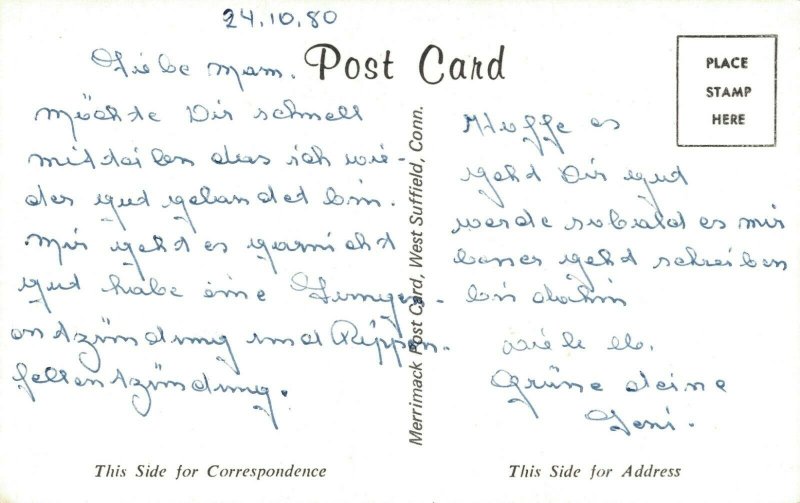 24.10.80
Post Card
PLACE
STAMP
HERE
Liebe Mam.
möchte Dir schnell
mitteilen das ich wie-
der gut gelandet bin.
Mir geht es garnicht
gut habe eine Lungen-
entzündung und Rippen-
fellentzündung.
Merrimack Post Card, West Suffield, Conn.
Hoffe es
geht Dir gut
werde sobald es mir
besser geht schreiben
bin dahin
viele lb.
Grüße deine
Leni.
This Side for Correspondence
This Side for Address